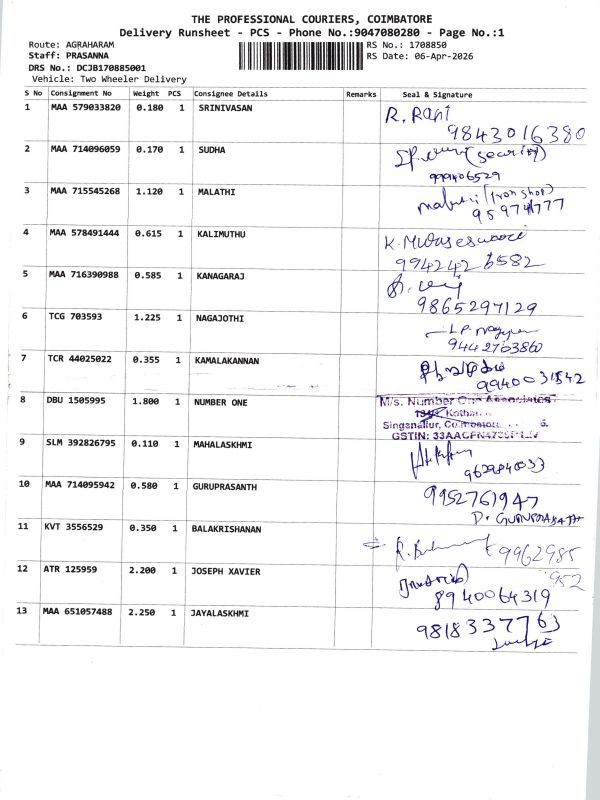 THE PROFESSIONAL COURIERS, COIMBATORE
Delivery Runsheet - PCS - Phone No.:9047080280 - Page No.:1
Route: AGRAHARAM RS No.: 1708850
Staff: PRASANNA RS Date: 06-Apr-2026
DRS No.: DCJB170885001
Vehicle: Two Wheeler Delivery
S No Consignment No Weight PCS Consignee Details Remarks Seal & Signature
1 MAA 579033820 0.180 1 SRINIVASAN R. Rani
9843016380
2 MAA 714096059 0.170 1 SUDHA
999406529
3 MAA 715545268 1.120 1 MALATHI (Iron shop)
4 MAA 578491444 0.615 1 KALIMUTHU
9942426582
5 MAA 716390988 0.585 1 KANAGARAJ
9865297129
6 TCG 703593 1.225 1 NAGAJOTHI
9442703860
7 TCR 44025022 0.355 1 KAMALAKANNAN
8 DBU 1505995 1.800 1 NUMBER ONE M/s. Number One Associates
Singanallur,
GSTIN:
9 SLM 392826795 0.110 1 MAHALASKHMI
10 MAA 714095942 0.580 1 GURUPRASANTH 9952761947
11 KVT 3556529 0.350 1 BALAKRISHANAN 9962985
952
12 ATR 125959 2.200 1 JOSEPH XAVIER
8940064319
13 MAA 651057488 2.250 1 JAYALASKHMI 9818337763